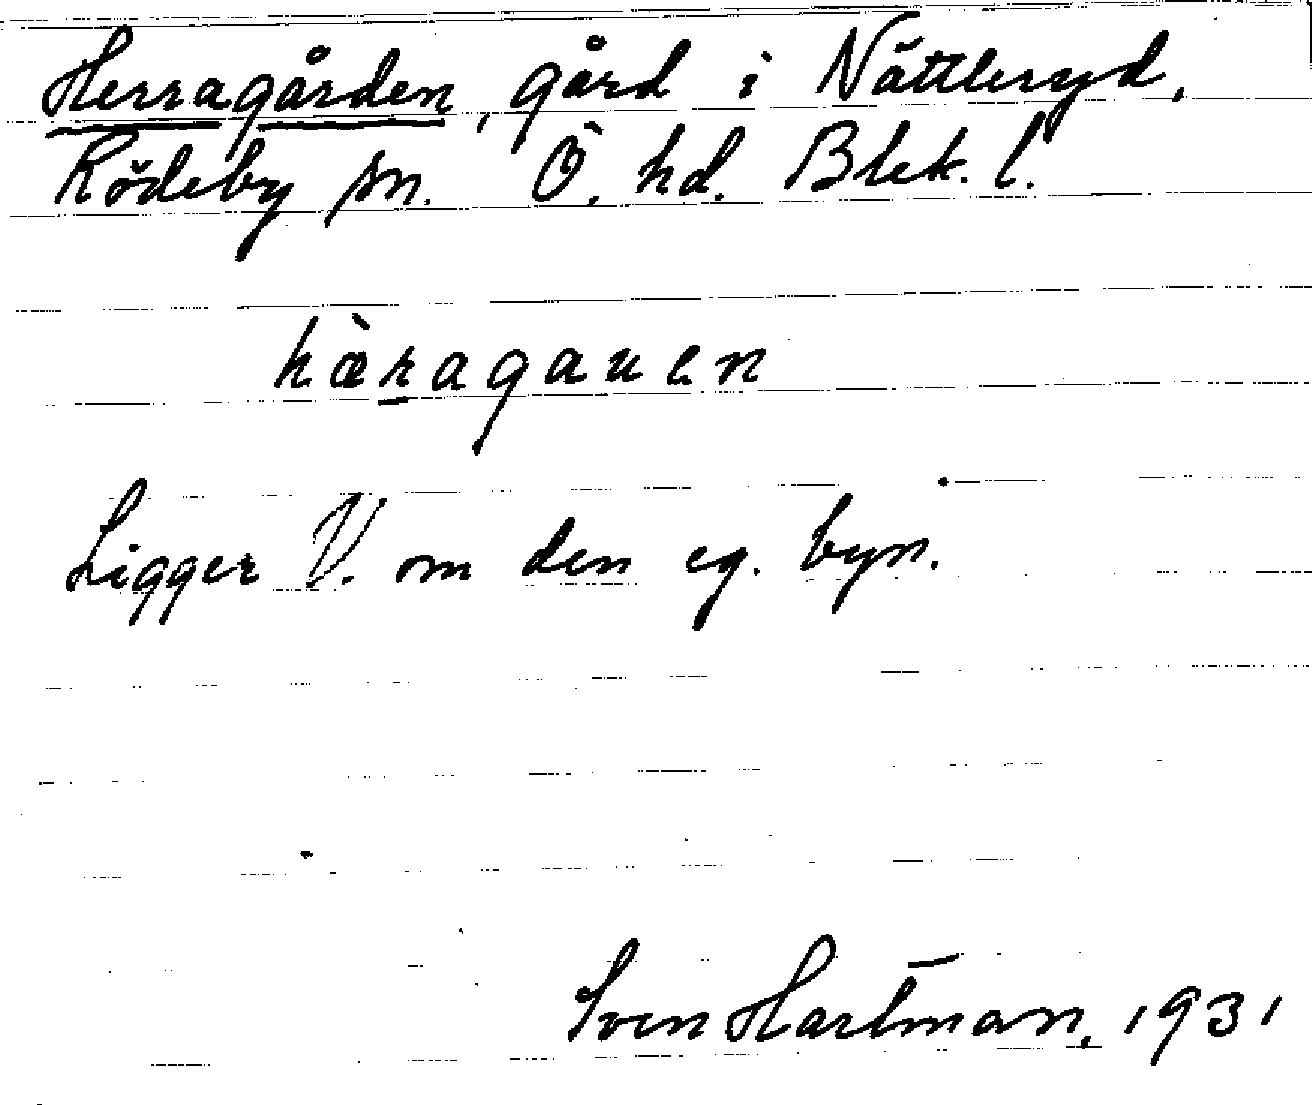 Herragården, gård i Nättleryd,
Rödeby sn. Ö. hd. Blek. l.
hæ̀ragauen
Ligger V. om den eg. byn.
Sven Hartman, 1931